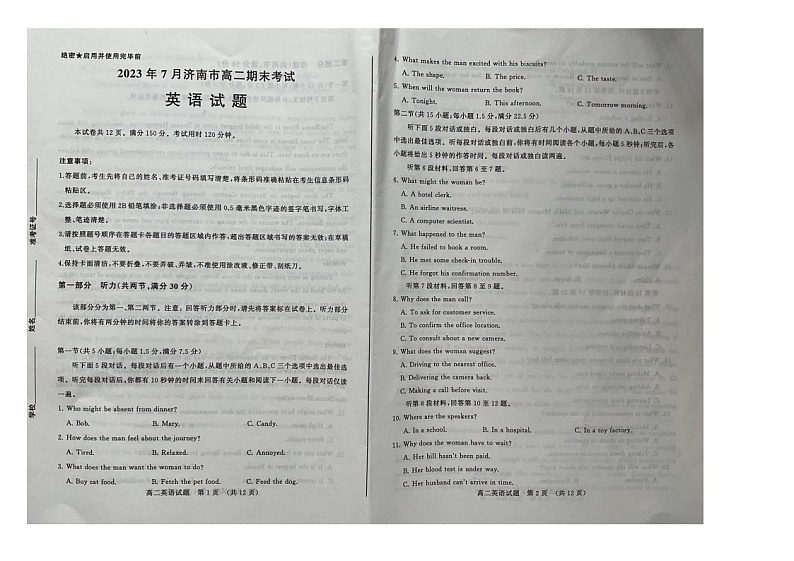 绝密★启用并使用完毕前
2023 年 7 月济南市高二期末考试
英 语 试 题
本试卷共 12 页。满分 150 分。考试用时 120 分钟。
注意事项:
1.答题前,考生先将自己的姓名、准考证号码填写清楚,将条形码准确粘贴在考生信息条形码
粘贴区。
2.选择题必须使用 2B 铅笔填涂;非选择题必须使用 0.5 毫米黑色字迹的签字笔书写,字体工
整、笔迹清楚。
3.请按照题号顺序在答题卡各题目的答题区域内作答,超出答题区域书写的答案无效;在草稿
纸、试卷上答题无效。
4.保持卡面清洁,不要折叠、不要弄破、弄皱,不准使用涂改液、修正带、刮纸刀。
第一部分 听力(共两节,满分 30 分)
该部分分为第一、第二两节。注意:回答听力部分时,请先将答案标在试卷上。听力部分
结束前,你将有两分钟的时间将你的答案转涂到答题卡上。
第一节(共 5 小题;每小题 1.5 分,满分 7.5 分)
听下面 5 段对话。每段对话后有一个小题,从题中所给的 A、B、C 三个选项中选出最佳选
项。听完每段对话后,你都有 10 秒钟的时间来回答有关小题和阅读下一小题。每段对话仅读
一遍。
1. Who might be absent from dinner?
A. Bob. B. Mary. C. Candy.
2. How does the man feel about the journey?
A. Tired. B. Relaxed. C. Annoyed.
3. What does the man want the woman to do?
A. Buy cat food. B. Fetch the pet food. C. Feed the dog.
高二英语试题 第 1 页 (共 12 页)
准考证号
姓名
学校
4. What makes the man excited with his biscuits?
A. The shape. B. The price. C. The taste.
5. When will the woman return the book?
A. Tonight. B. This afternoon. C. Tomorrow morning.
第二节(共 15 小题;每小题 1.5 分,满分 22.5 分)
听下面 5 段对话或独白。每段对话或独白后有几个小题,从题中所给的 A、B、C 三个选项
中选出最佳选项。听每段对话或独白前,你将有时间阅读各个小题,每小题 5 秒钟;听完后,各
小题将给出 5 秒钟的作答时间。每段对话或独白读两遍。
听第 6 段材料,回答第 6 至 7 题。
6. What might the woman be?
A. A hotel clerk.
B. An airline waitress.
C. A computer scientist.
7. What happened to the man?
A. He failed to book a room.
B. He met some check-in trouble.
C. He forgot his confirmation number.
听第 7 段材料,回答第 8 至 9 题。
8. Why does the man call?
A. To ask for customer service.
B. To confirm the office location.
C. To consult about a new camera.
9. What does the woman suggest?
A. Driving to the nearest office.
B. Delivering the camera back.
C. Making a call before visit.
听第 8 段材料,回答第 10 至 12 题。
10. Where are the speakers?
A. In a school. B. In a hospital. C. In a toy factory.
11. Why does the woman have to wait?
A. Her bill hasn't been paid.
B. Her blood test is under way.
C. Her husband can't arrive in time.
高二英语试题 第 2 页 (共 12 页)